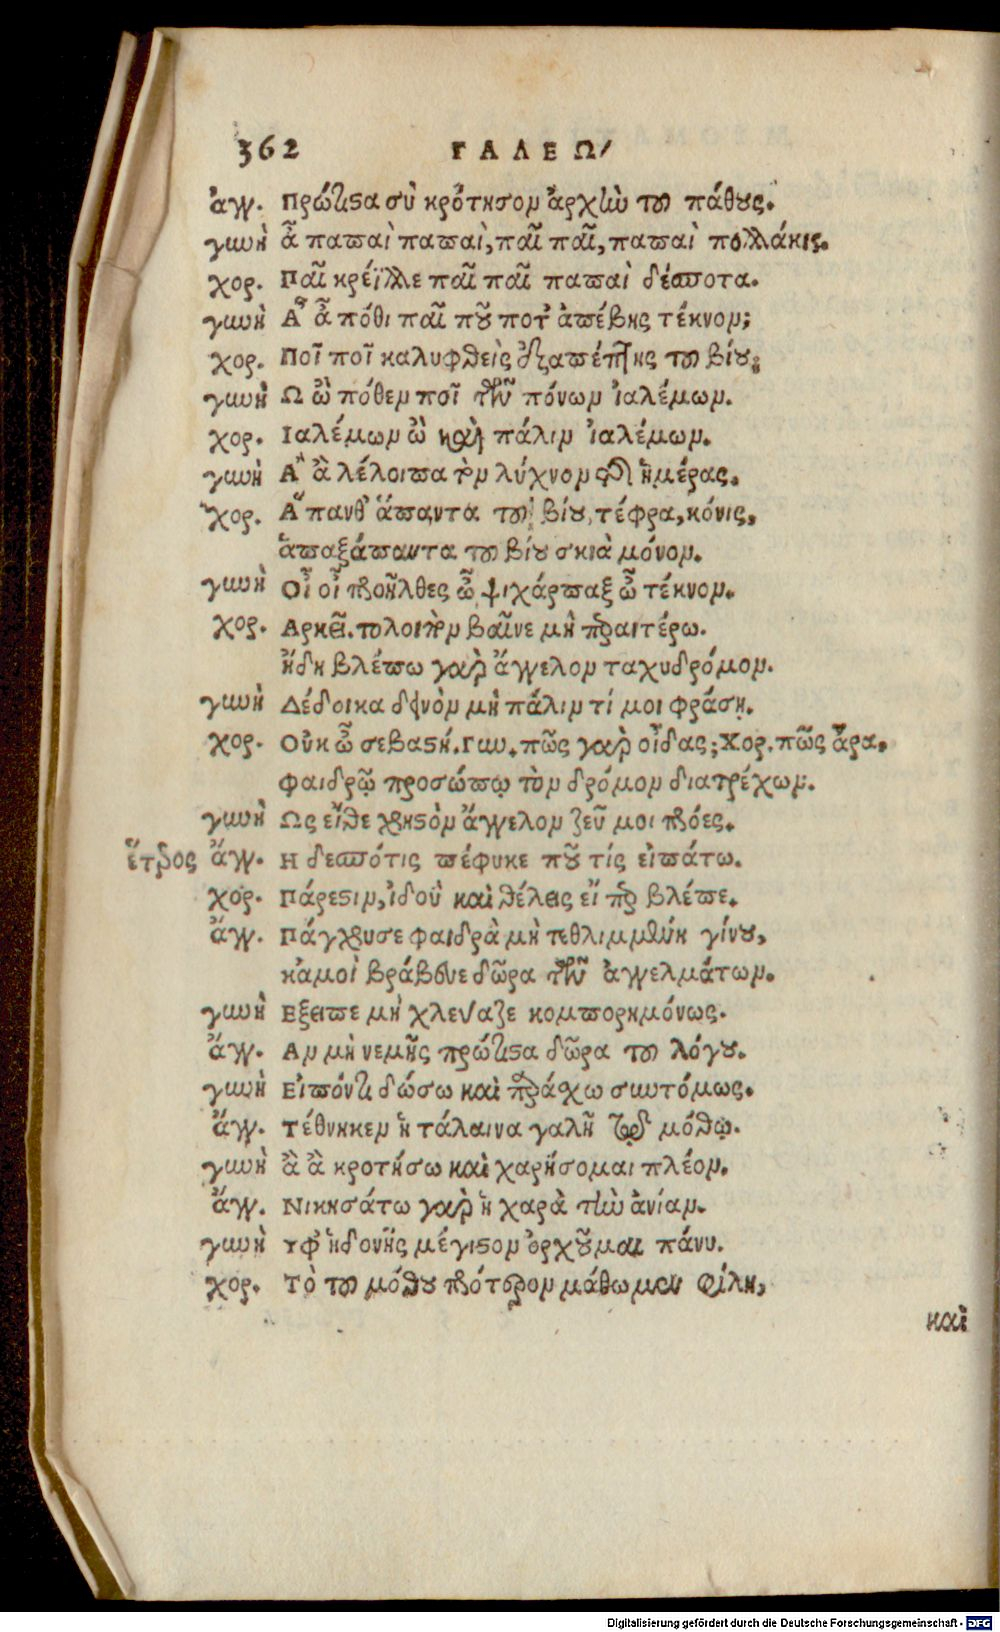 362 ΓΑΛΕΩ/
ἀγγ. Πρώτιστα σὺ κρότησον ἀρχὴν τοῦ πάθους.
γυνὴ ἆ παπαὶ παπαὶ, παῖ παῖ, παπαὶ πολλάκις.
χορ. Παῖ κρέϊλλε παῖ παῖ παπαὶ δέσποτα.
γυνὴ Ἆ ἆ πόθι παῖ ποῦ ποτ' ἀπέβης τέκνον;
χορ. Ποῖ ποῖ καλυφθεὶς ἐξαπέπτης τοῦ βίου;
γυνὴ Ω ὢ πόθεμ ποῖ τῶν πόνων ἰαλέμων.
χορ. Ιαλέμων ὢ καὶ πάλιν ἰαλέμων.
γυνὴ Ἂ ἂ λέλοιπα τὸν λύχνον τῆς ἡμέρας.
χορ. Ἅπανθ' ἅπαντα τοῦ βίου, τέφρα, κόνις,
ἁπαξάπαντα τοῦ βίου σκιὰ μόνον.
γυνὴ Οἷ οἷ προῆλθες ὦ ψιχάρπαξ ὦ τέκνον.
χορ. Αρκεῖ. τολοιπὸν βαῖνε μὴ πραιτέρω.
ἤδη βλέπω γὰρ ἄγγελον ταχυδρόμον.
γυνὴ Δέδοικα δεινὸν μὴ πάλιν τί μοι φράσῃ.
χορ. Οὐκ ὦ σεβαστή. Γυν. πῶς γὰρ οἶδας; Χορ. πῶς ἄρα.
φαιδρῷ προσώπῳ τὸν δρόμον διατρέχων.
γυνὴ Ως εἴθε χρηστὸν ἄγγελον ζεῦ μοι πρόες.
ἕτερος ἄγγ. Η δεσπότις πέφυκε ποῦ τίς εἰπάτω.
χορ. Πάρεστιν, ἰδοὺ καὶ θέλεις εἴ περ βλέπε.
ἄγγ. Πάγχρυσε φαιδρὰ μὴ τεθλιμμένη γίνου,
κἀμοὶ βράβευε δῶρα τῶν ἀγγελμάτων.
γυνὴ Εξειπε μὴ χλεύαζε κομπορημόνως.
ἄγγ. Αν μὴ νεμῇς πρώτιστα δῶρα τοῦ λόγου.
γυνὴ Εἰπόντι δώσω καὶ παράσχω συντόμως.
ἄγγ. Τέθνηκεν ἡ τάλαινα γαλῆ τῷ μόθῳ.
γυνὴ ἂ ἂ κροτήσω καὶ χαρήσομαι πλέον.
ἄγγ. Νικησάτω γὰρ ἡ χαρὰ τὴν ἀνίαν.
γυνὴ Υφ' ἡδονῆς μέγιστον ὀρχοῦμαι πάνυ.
χορ. Τὸ τοῦ μόθου πρότερον μάθωμεν φίλη,
καὶ
Digitalisierung gefördert durch die Deutsche Forschungsgemeinschaft - DFG